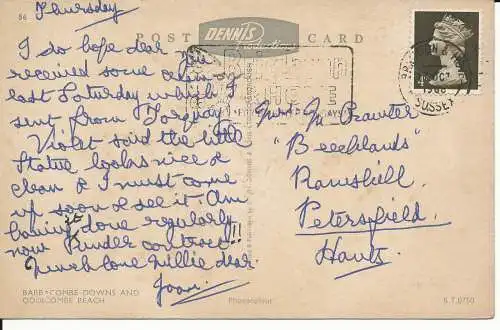 56
Thursday
POST CARD
DENNIS
Productions
I do hope dear you
received some cream
last Saturday which I
sent from Torquay
Violet said the little
Statue looks nice &
clean & I must come
up soon & see it. Am
having it done regularly
now under contract!!
Much love Millie dear.
Joan.
BABBACOMBE DOWNS AND
ODDICOMBE BEACH
Photocolour
Mrs M Prawter
"Beechlands"
Ramshill
Petersfield
Hants.
OCT
SUSSEX
B.T.0750